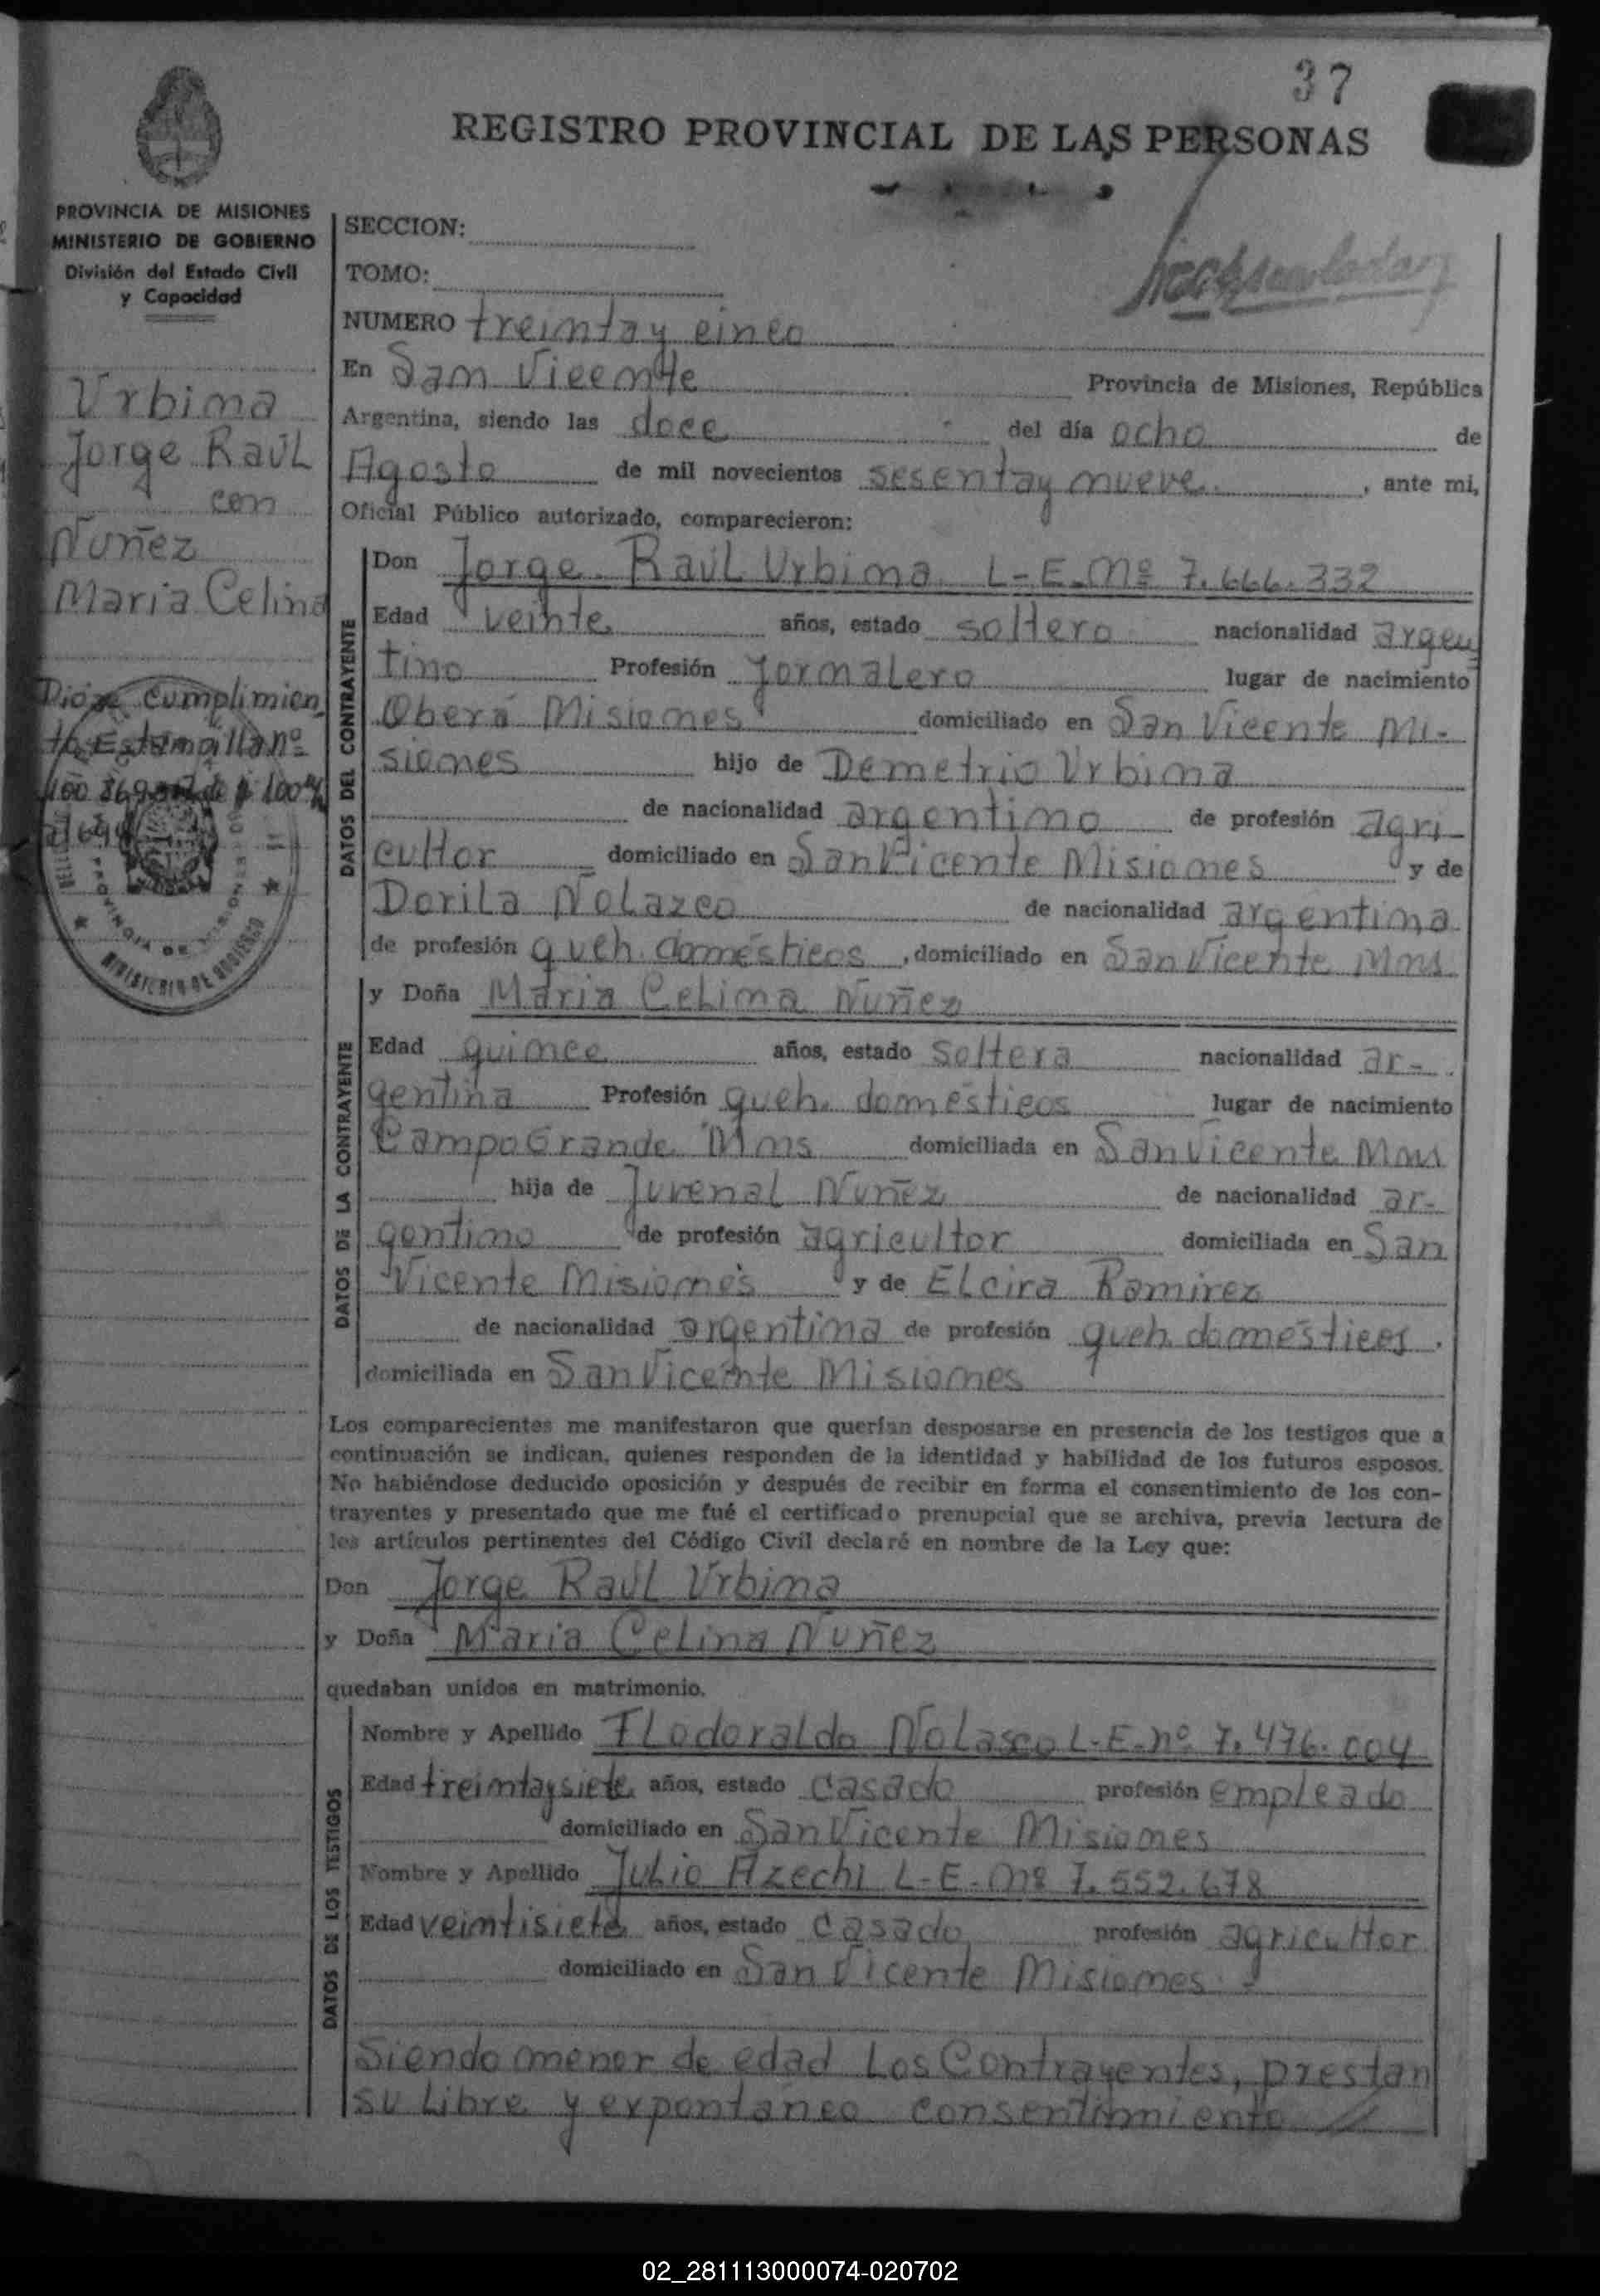 37
REGISTRO PROVINCIAL DE LAS PERSONAS
PROVINCIA DE MISIONES
MINISTERIO DE GOBIERNO
División del Estado Civil
y Capacidad
Urbina
Jorge Raúl
con
Nuñez
Maria Celina
Dióse cumplimien
to Estampilla nº
SECCION:
TOMO:
NUMERO treinta y cinco
En San Vicente Provincia de Misiones, República
Argentina, siendo las doce del día ocho de
Agosto de mil novecientos sesenta y nueve. , ante mi,
Oficial Público autorizado, comparecieron:
DATOS DEL CONTRAYENTE
Don Jorge Raúl Urbina L-E-Nº 7.666.332
Edad veinte años, estado soltero nacionalidad argen
tino Profesión Jornalero lugar de nacimiento
Oberá Misiones domiciliado en San Vicente Mi-
siones hijo de Demetrio Urbina
de nacionalidad argentino de profesión agri-
cultor domiciliado en San Vicente Misiones y de
Dorila Nolazco de nacionalidad argentina
de profesión queh. domésticos , domiciliado en San Vicente Mnes
DATOS DE LA CONTRAYENTE
y Doña Maria Celina Nuñez
Edad quince años, estado soltera nacionalidad ar-
gentina Profesión queh. domésticos lugar de nacimiento
Campo Grande Mnes domiciliada en San Vicente Mnes
hija de Juvenal Nuñez de nacionalidad ar-
gentino de profesión agricultor domiciliada en San
Vicente Misiones y de Elcira Ramirez
de nacionalidad argentina de profesión queh. domésticos.
domiciliada en San Vicente Misiones
Los comparecientes me manifestaron que querían desposarse en presencia de los testigos que a
continuación se indican, quienes responden de la identidad y habilidad de los futuros esposos.
No habiéndose deducido oposición y después de recibir en forma el consentimiento de los con-
trayentes y presentado que me fué el certificado prenupcial que se archiva, previa lectura de
los artículos pertinentes del Código Civil declaré en nombre de la Ley que:
Don Jorge Raúl Urbina
y Doña Maria Celina Nuñez
quedaban unidos en matrimonio.
DATOS DE LOS TESTIGOS
Nombre y Apellido Flodoraldo Nolasco L-E-nº 7.476.004
Edad treinta y siete años, estado casado profesión empleado
domiciliado en San Vicente Misiones
Nombre y Apellido Julio Azechi L-E-Nº 7.552.678
Edad veintisiete años, estado casado profesión agricultor
domiciliado en San Vicente Misiones -
Siendo menor de edad Los Contrayentes, prestan
su libre y expontáneo consentimiento
02_281113000074-020702